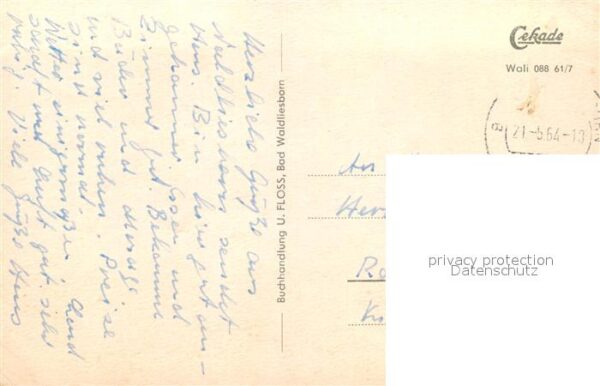 Herzliche Grüße aus
Waldliesborn sendet
Hans. Bin hier gut an-
gekommen. Essen und
Zimmer gut. Bekomme
Bäder und
und viel ruhen. Preise
sind normal.
Wetter einigermaßen. Land
schaft und Luft gut. sehr
ruhig. Viele Grüße Hans
Buchhandlung U. FLOSS, Bad Waldliesborn
Cekade
Wali 088 61/7
21.-5.64-10
An
Her
Ra
K
privacy protection
Datenschutz